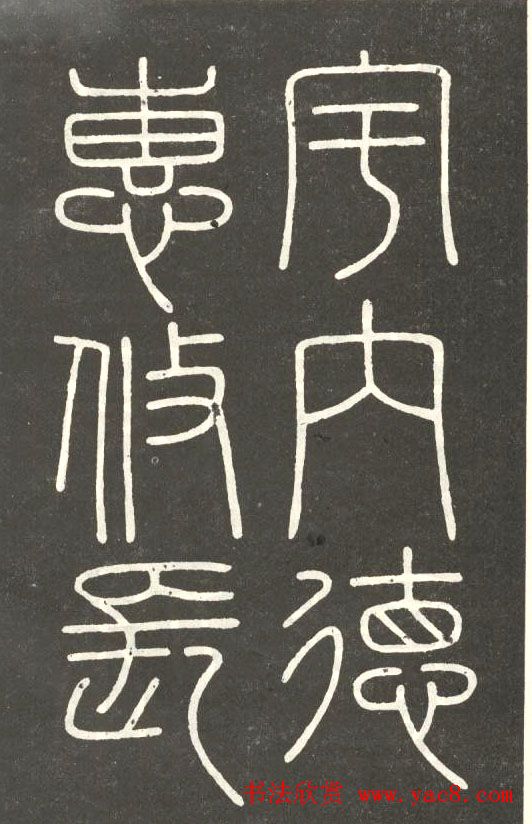 宇内德
惠攸長
书法欣赏 www.yac8.com